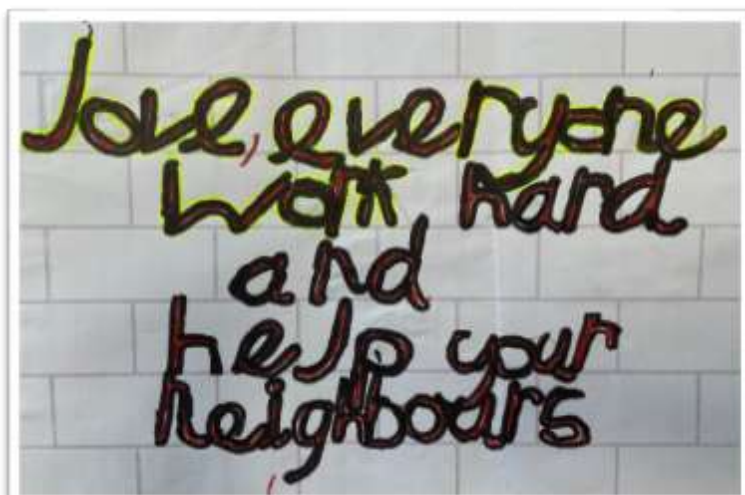 love, everyone
work hard
and
help your
neighbours